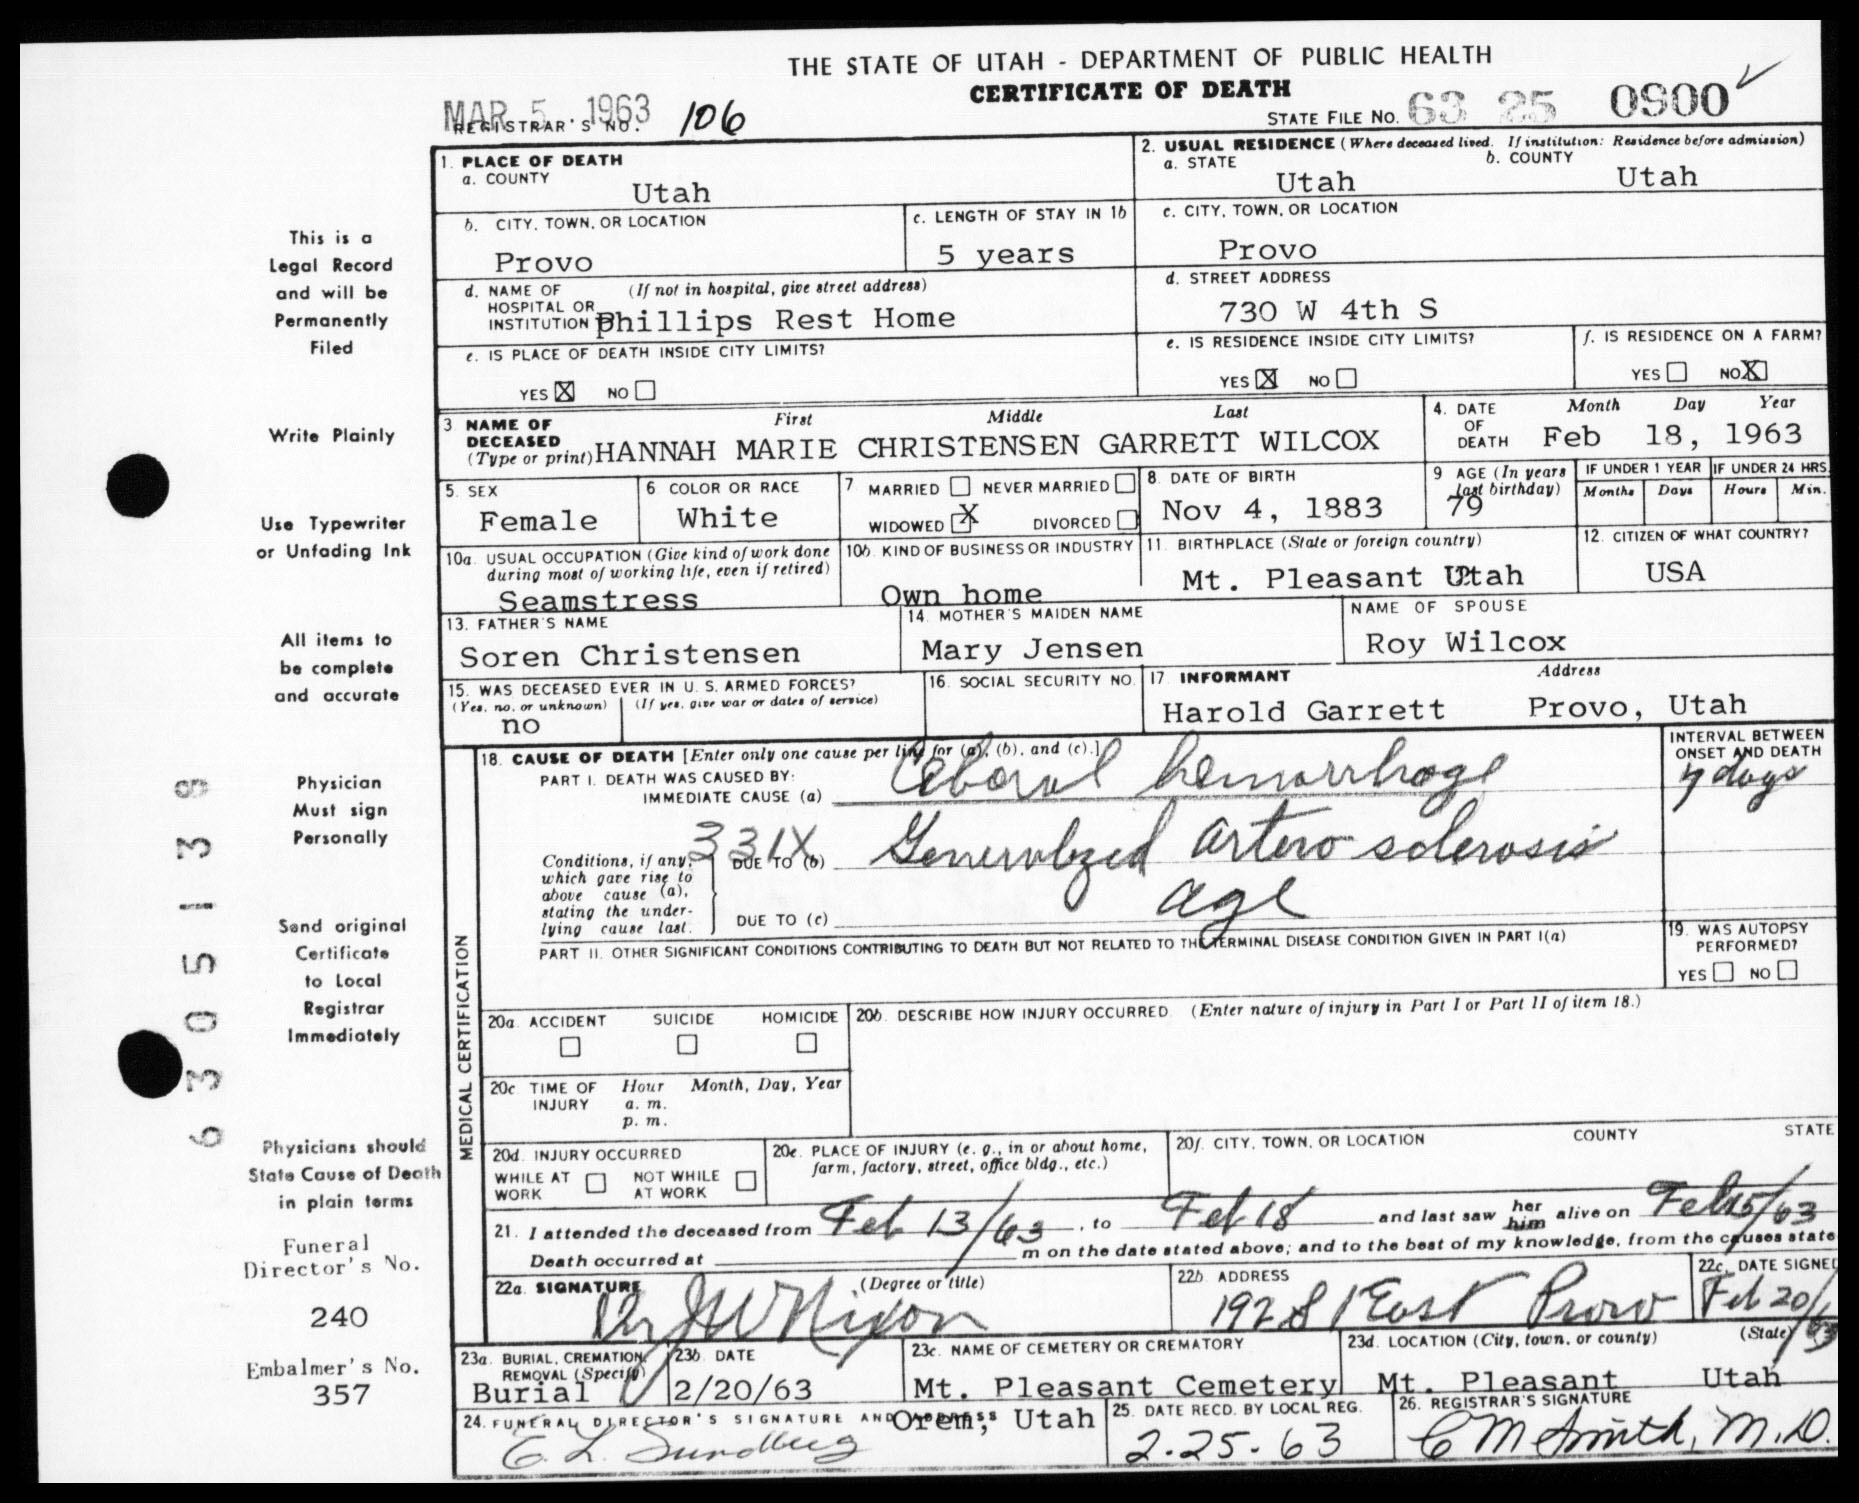 THE STATE OF UTAH - DEPARTMENT OF PUBLIC HEALTH
CERTIFICATE OF DEATH
MAR 5 . 1963
REGISTRAR'S NO. 106
STATE FILE NO. 63 25 0900 ✓
1. PLACE OF DEATH
a. COUNTY
Utah
2. USUAL RESIDENCE (Where deceased lived. If institution: Residence before admission)
a. STATE
Utah
b. COUNTY
Utah
b. CITY, TOWN, OR LOCATION
Provo
c. LENGTH OF STAY IN 1b
5 years
c. CITY, TOWN, OR LOCATION
Provo
d. NAME OF HOSPITAL OR INSTITUTION (If not in hospital, give street address)
Phillips Rest Home
d. STREET ADDRESS
730 W 4th S
e. IS PLACE OF DEATH INSIDE CITY LIMITS?
YES X NO
e. IS RESIDENCE INSIDE CITY LIMITS?
YES X NO
f. IS RESIDENCE ON A FARM?
YES NO X
3 NAME OF DECEASED (Type or print)
First Middle Last
HANNAH MARIE CHRISTENSEN GARRETT WILCOX
4. DATE OF DEATH
Month Day Year
Feb 18, 1963
5. SEX
Female
6 COLOR OR RACE
White
7 MARRIED NEVER MARRIED
WIDOWED X DIVORCED
8. DATE OF BIRTH
Nov 4, 1883
9 AGE (In years last birthday)
79
IF UNDER 1 YEAR
Months Days
IF UNDER 24 HRS.
Hours Min.
10a. USUAL OCCUPATION (Give kind of work done during most of working life, even if retired)
Seamstress
10b. KIND OF BUSINESS OR INDUSTRY
Own home
11. BIRTHPLACE (State or foreign country)
Mt. Pleasant Utah
12. CITIZEN OF WHAT COUNTRY?
USA
13. FATHER'S NAME
Soren Christensen
14. MOTHER'S MAIDEN NAME
Mary Jensen
NAME OF SPOUSE
Roy Wilcox
15. WAS DECEASED EVER IN U. S. ARMED FORCES?
(Yes, no, or unknown) (If yes, give war or dates of service)
no
16. SOCIAL SECURITY NO.
17 INFORMANT Address
Harold Garrett Provo, Utah
MEDICAL CERTIFICATION
18. CAUSE OF DEATH [Enter only one cause per line for (a), (b), and (c).]
PART I. DEATH WAS CAUSED BY:
IMMEDIATE CAUSE (a) Ceberal hemorrhage
INTERVAL BETWEEN ONSET AND DEATH
7 days
331X
Conditions, if any, which gave rise to above cause (a), stating the underlying cause last.
DUE TO (b) Generalized artero sclerosis
DUE TO (c) age
PART II. OTHER SIGNIFICANT CONDITIONS CONTRIBUTING TO DEATH BUT NOT RELATED TO THE TERMINAL DISEASE CONDITION GIVEN IN PART I(a)
19. WAS AUTOPSY PERFORMED?
YES NO
20a. ACCIDENT SUICIDE HOMICIDE
20b. DESCRIBE HOW INJURY OCCURRED. (Enter nature of injury in Part I or Part II of item 18.)
20c TIME OF INJURY Hour Month, Day, Year
a. m.
p. m.
20d. INJURY OCCURRED
WHILE AT WORK NOT WHILE AT WORK
20e. PLACE OF INJURY (e. g., in or about home, farm, factory, street, office bldg., etc.)
20f. CITY, TOWN, OR LOCATION COUNTY STATE
21. I attended the deceased from Feb 13/63, to Feb 18 and last saw her him alive on Feb 15/63
Death occurred at m on the date stated above; and to the best of my knowledge, from the causes state
22a. SIGNATURE (Degree or title)
Dr J W Nixon
22b. ADDRESS
192 S 1 East Provo
22c. DATE SIGNED
Feb 20/63
23a. BURIAL, CREMATION, REMOVAL (Specify)
Burial
23b. DATE
2/20/63
23c. NAME OF CEMETERY OR CREMATORY
Mt. Pleasant Cemetery
23d. LOCATION (City, town, or county) (State)
Mt. Pleasant Utah
24. FUNERAL DIRECTOR'S SIGNATURE AND ADDRESS
E. L. Sundberg Orem, Utah
25. DATE RECD. BY LOCAL REG.
2-25-63
26. REGISTRAR'S SIGNATURE
C M Smith, M.D.
This is a
Legal Record
and will be
Permanently
Filed
Write Plainly
Use Typewriter
or Unfading Ink
All items to
be complete
and accurate
Physician
Must sign
Personally
Send original
Certificate
to Local
Registrar
Immediately
Physicians should
State Cause of Death
in plain terms
Funeral
Director's No.
240
Embalmer's No.
357